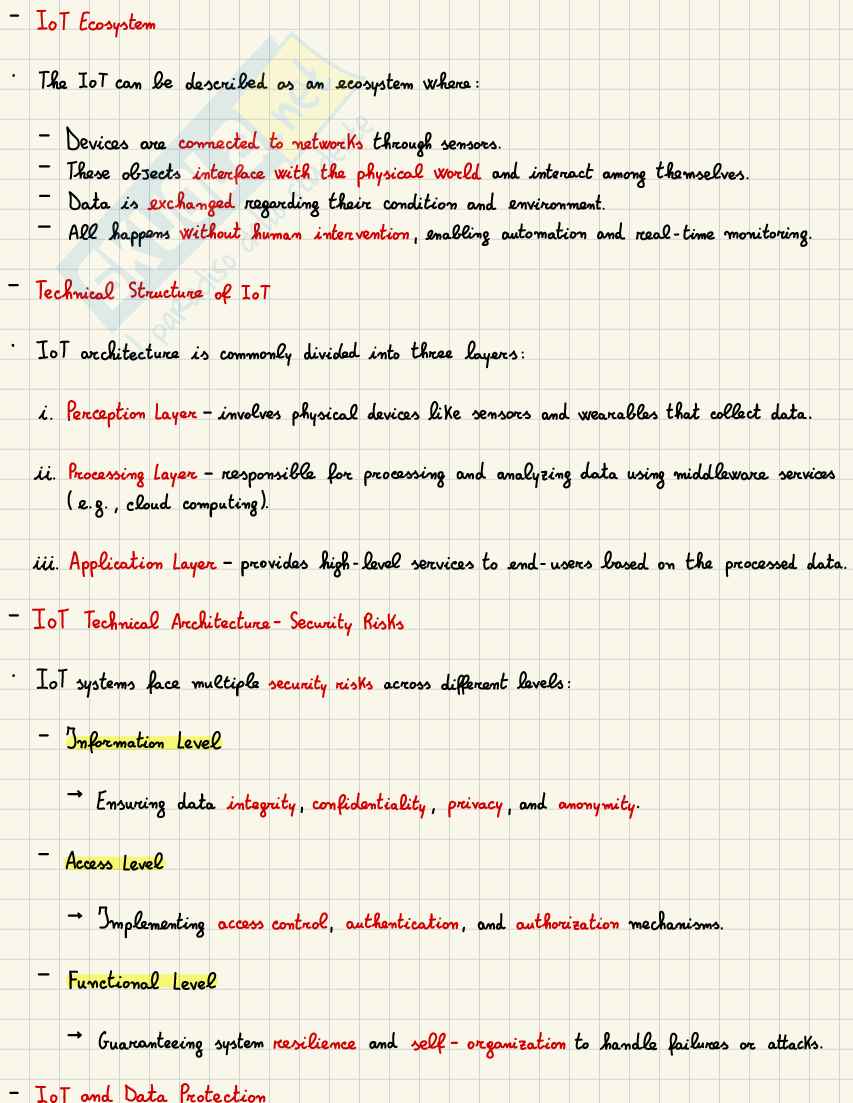 - IoT Ecosystem
· The IoT can be described as an ecosystem where:
- Devices are connected to networks through sensors.
- These objects interface with the physical world and interact among themselves.
- Data is exchanged regarding their condition and environment.
- All happens without human intervention, enabling automation and real-time monitoring.
- Technical Structure of IoT
· IoT architecture is commonly divided into three layers:
i. Perception Layer - involves physical devices like sensors and wearables that collect data.
ii. Processing Layer - responsible for processing and analyzing data using middleware services
(e.g., cloud computing).
iii. Application Layer - provides high-level services to end-users based on the processed data.
- IoT Technical Architecture - Security Risks
· IoT systems face multiple security risks across different levels:
- Information Level
→ Ensuring data integrity, confidentiality, privacy, and anonymity.
- Access Level
→ Implementing access control, authentication, and authorization mechanisms.
- Functional Level
→ Guaranteeing system resilience and self-organization to handle failures or attacks.
- IoT and Data Protection